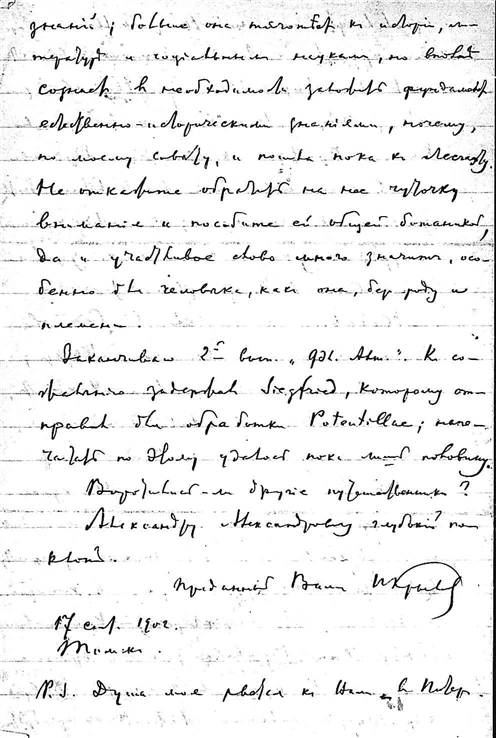 знаній; больше она тяготѣетъ къ исторіи, ли-
тературѣ и соціальнымъ наукамъ, но вполнѣ
сознаетъ необходимость заложить фундаментъ
естественно-историческими знаніями, почему,
по моему совѣту, и пошла пока къ Лесгафту.
Не откажите обратить на нее чуточку
вниманія и пособите ей общей ботаникой,
да и участливое слово много значитъ, осо-
бенно для человѣка, какъ она, безъ роду и
племени.
Заканчиваю 2й вып. „Фл. Алт.". Къ со-
жалѣнію задержалъ Siegfried, которому от-
правилъ для обработки Potentillae; напе-
чатать по этому удалось пока лишь половину.
Воротились-ли другіе путешественники?
Александру Александровичу глубокій по-
клонъ.
Преданный Вамъ ПКрыловъ
17 сент. 1902.
Томскъ.
P.S. Душа моя рвется къ Вамъ, въ Петерб.